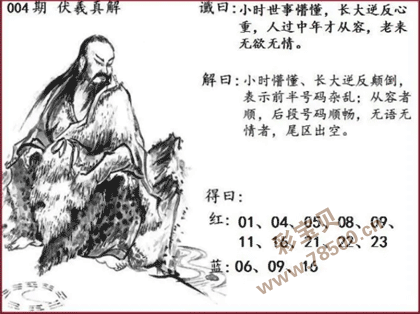 004期 伏羲真解
谶曰：小时世事懵懂，长大逆反心
重，人过中年才从容，老来
无欲无情。
解曰：小时懵懂、长大逆反颠倒，
表示前半号码杂乱；从容者
顺，后段号码顺畅，无语无
情者，尾区出空。
得曰：
红：01、04、05、08、09、
11、16、21、22、23
蓝：06、09、16
彩宝贝
www.78500.cn